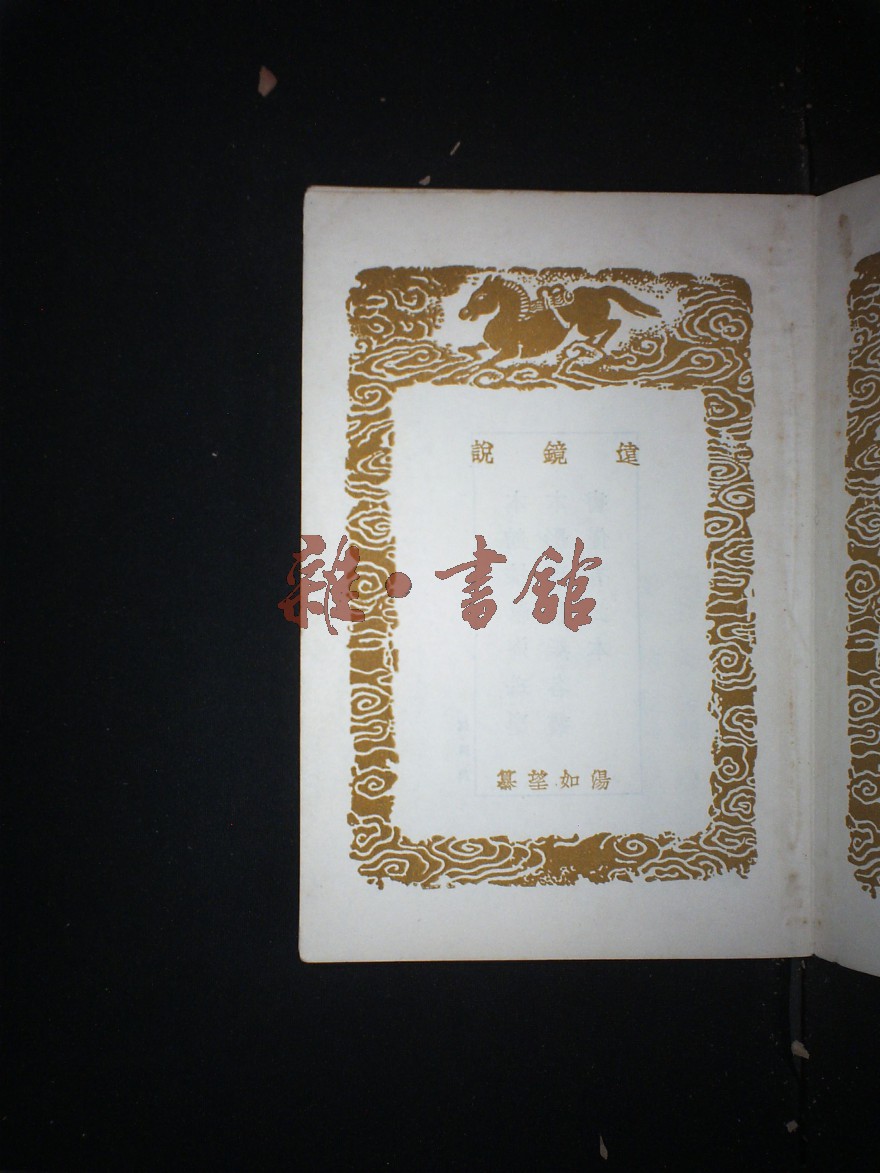 遠鏡說
雜·書館
湯如望纂